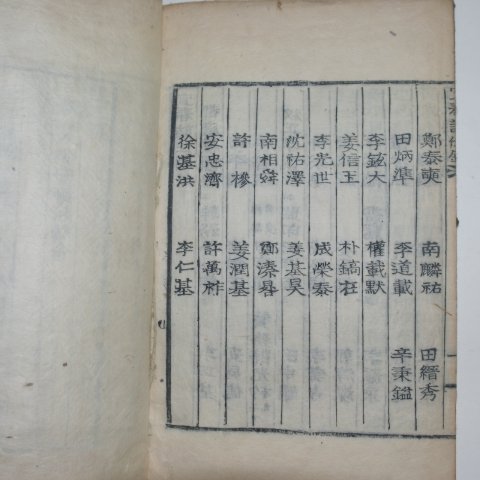 鄭泰奭 南麟祐 田縉秀
田炳準 李道載 辛秉鑑
李鉉大 權載默
姜信玉 朴鎬在
李光世 成榮泰
沈祐澤 姜基昊
南相舜 鄭溱晷
許槮 姜潤基
安忠濟 許萬祚
徐基洪 李仁基